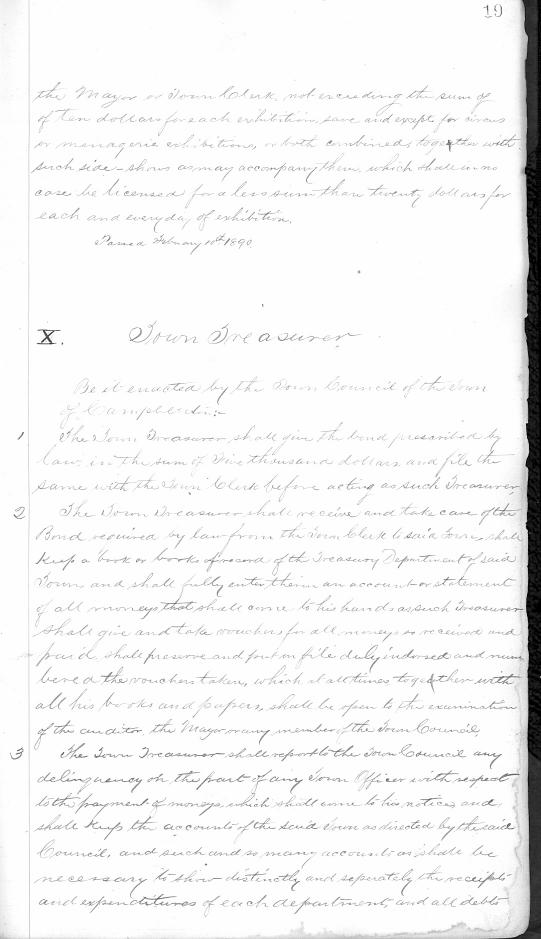 19
the Mayor or Town Clerk, not exceeding the sum of
of ten dollars for each exhibition, save and except for circus
or menagerie exhibition, or both combined, together with
such side-shows as may accompany them, which shall in no
case be licensed for a less sum than twenty dollars for
each and every day of exhibition.
Passed February 10th 1890
X. Town Treasurer
Be it enacted by the Town Council of the Town
of :-
1 The Town Treasurer, shall give the bond prescribed by
law, in the sum of Five thousand dollars and file the
same with the Town Clerk before acting as such Treasurer.
2 The Town Treasurer shall receive and take care of the
Bond required by law from the Town Clerk to said Town, shall
keep a book or books of record of the Treasury Department of said
Town and shall fully enter therein an account or statement
of all moneys that shall come to his hands as such Treasurer
shall give and take vouchers for all moneys so received and
paid, shall preserve and put on file duly indorsed and num
bered the vouchers taken, which at all times together with
all his books and papers, shall be open to the examination
of the auditor, the Mayor or any member of the Town Council.
3 The Town Treasurer shall report to the Town Council any
delinquency on the part of any Town Officer with respect
to the payment of moneys, which shall come to his notice and
shall keep the accounts of the said Town as directed by the said
Council, and such and so many accounts as shall be
necessary to show distinctly and seperately the receipts
and expenditures of each department, and all debts